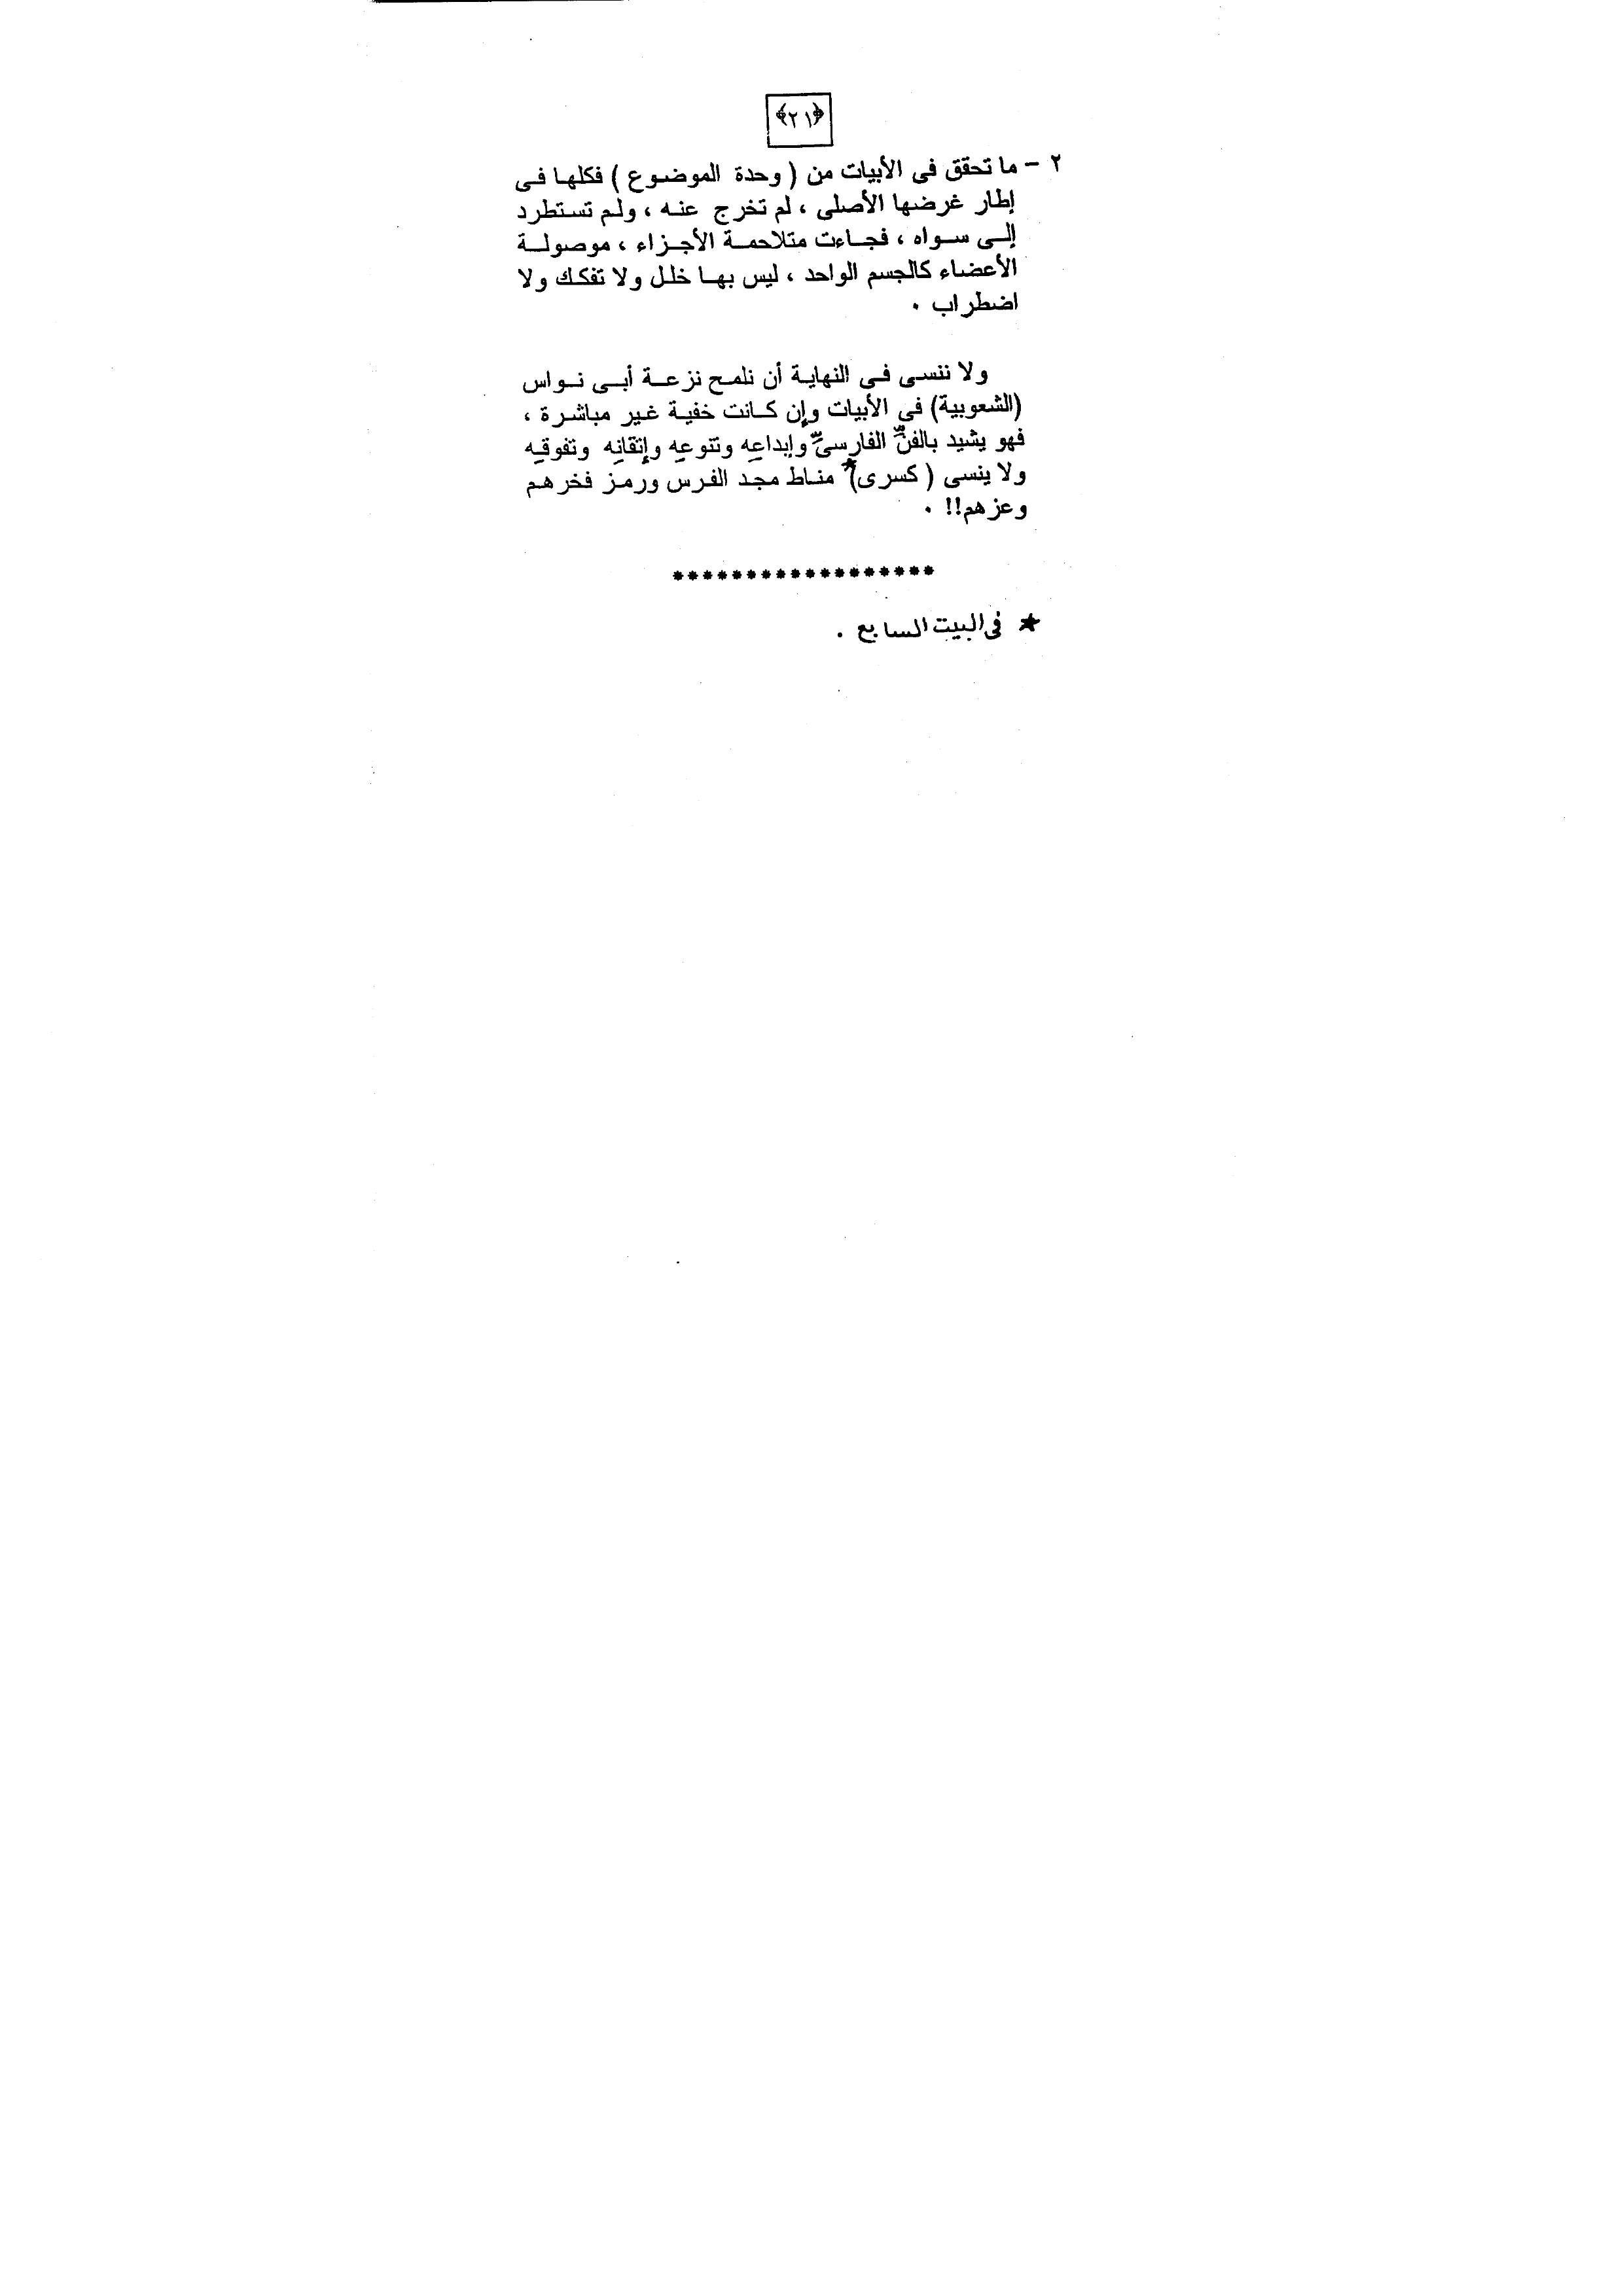 ﴿٢١﴾
٢ - ما تحقق فى الأبيات من ( وحدة الموضوع ) فكلها فى
إطار غرضها الأصلى ، لم تخرج عنه ، ولم تستطرد
إلى سواه ، فجاءت متلاحمة الأجزاء ، موصولة
الأعضاء كالجسم الواحد ، ليس بها خلل ولا تفكك ولا
اضطراب .
ولا ننسى فى النهاية أن نلمح نزعة أبى نواس
(الشعوبية) فى الأبيات وإن كانت خفية غير مباشرة ،
فهو يشيد بالفنِّ الفارسىِّ وإبداعِه وتنوعِه وإتقانِه وتفوقِه
ولا ينسى ( كسرى)* مناط مجد الفرس ورمز فخرهم
وعزهم!! .
******************
* فى البيت السابع .